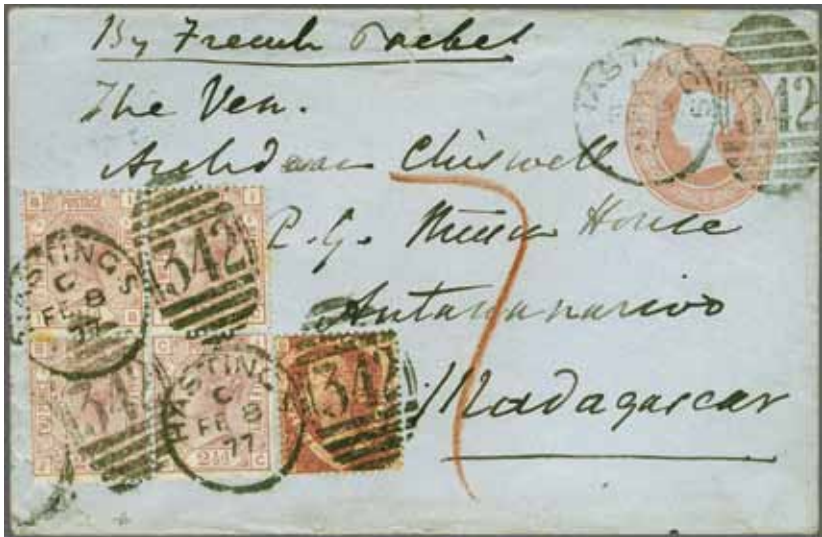 By French Packet
The Ven.
Archdeacon Chiswell
P. G. Mission House
Antananarivo
Madagascar
7
HASTINGS
C
FE 8
77
342
POSTAGE
342
HASTINGS
C
FE 8
77
342
342
2½